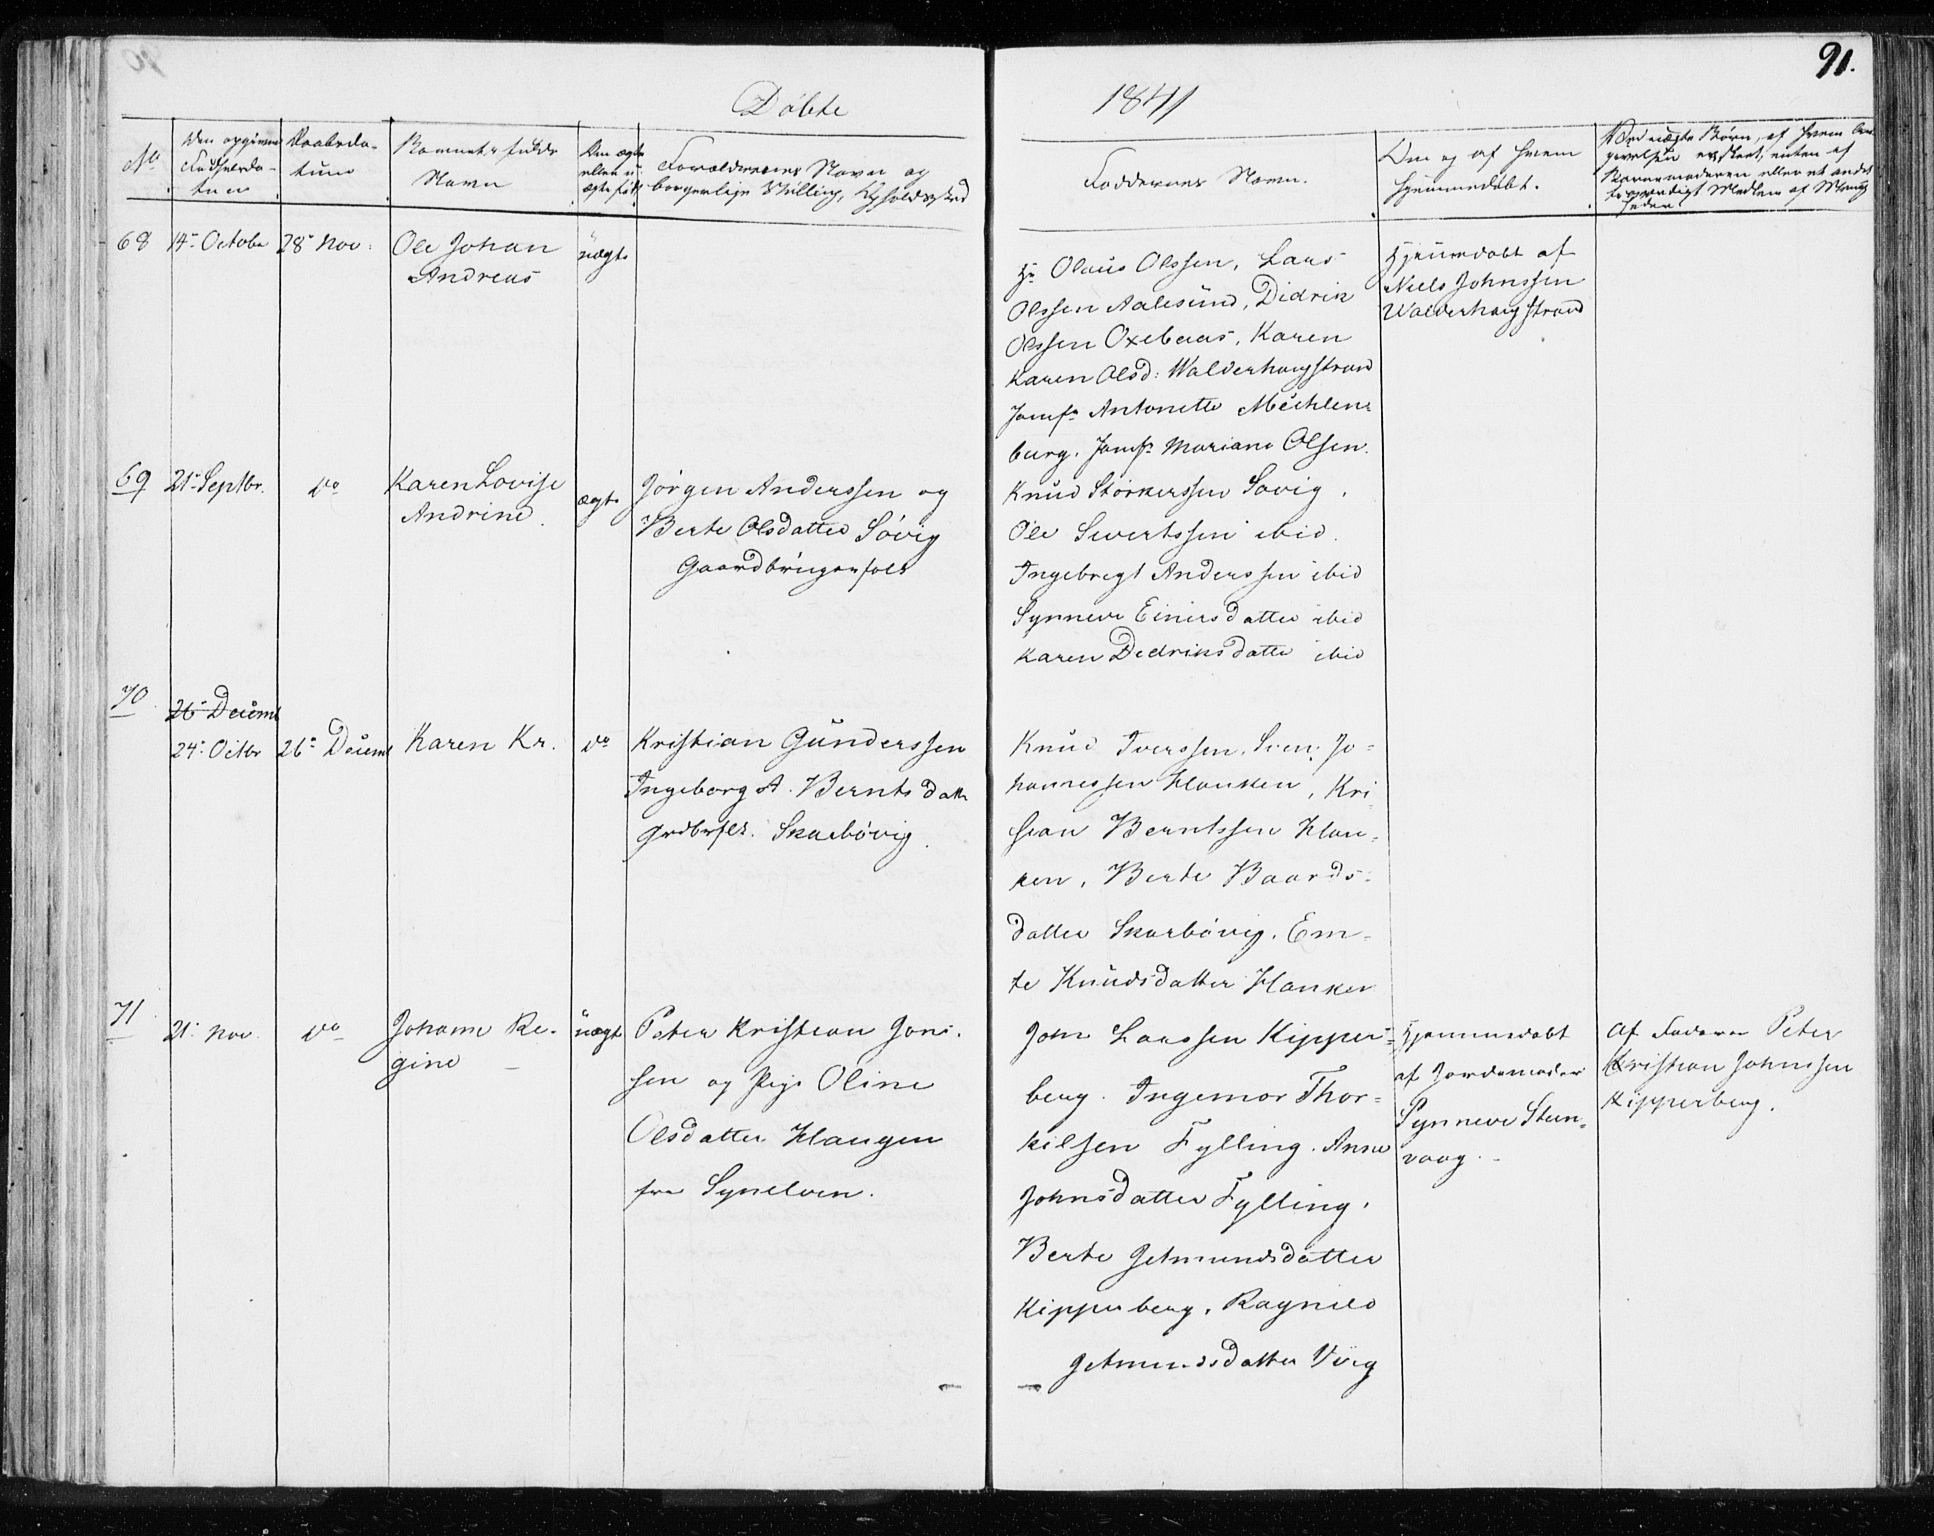 91.
Døbte
1841
No
Den opgivne
Fødselsda-
tum
Daabsda-
tum
Barnets fulde
Navn
Om ægte
eller u-
ægte født
Forældrenes Navn og
borgerlige Stilling, Opholdssted
Faddernes Navn.
Om og af hvem
hjemmedøbt.
Ved uægte Børn, af hvem
er skeet, enten af
Barnemoderen eller et andet
troværdigt Medlem af Menig-
heden
68
14de October
28de Nov:
Ole Johan
Andreas
uægte
Hr Olaus Olssen, Lars
Olssen Aalesund, Didrik
Olssen Oxebaas, Karen
Karen Olsd: Walderhougstrand
Jomfr Antonette Mechlen-
burg, Jomfr Mariane Olsen.
Hjemmedøbt af
Niels Johnssen
Walderhougstrand
69
21de Septbr.
do
Karen Lovise
Andrine
ægte
Jørgen Anderssen og
Berte Olsdatter Søvig
Gaardbrugerfolk
Knud Størkerssen Søvig,
Ole Sivertssen ibid.
Ingebregt Anderssen ibid
Synneve Einersdatter ibid
Karen Dedriksdatter ibid
70
26de Decemb
24de Octbr
26de Decemb
Karen Kr.
do
Kristian Gunderssen
Ingeborg A. Berntsdatter
Grdbrflk. Skarbøvig.
Knud Iverssen, Sven Jo-
hannessen Hanken, Kri-
stian Berntssen Han-
ken, Berte Baards-
datter Skarbøvig, Em-
te Knudsdatter Hanken
71
21de Nov.
do
Johanne Re-
gine
uægte
Peter Kristian Jons-
sen og Pige Oline
Olsdatter Haugen
fra Synelven.
John Larssen Kipper-
berg. Ingemor Thor-
kilsen Fylling. Anne
Johnsdatter Fylling,
Berte Getmundsdatter
Kipperberg, Ragnild
Getmundsdatter Viig
Hjemmedøbt
af Jordemoder
Synneve Steen-
vaag.
Af Faderen Peter
Kristian Johnssen
Kipperberg.